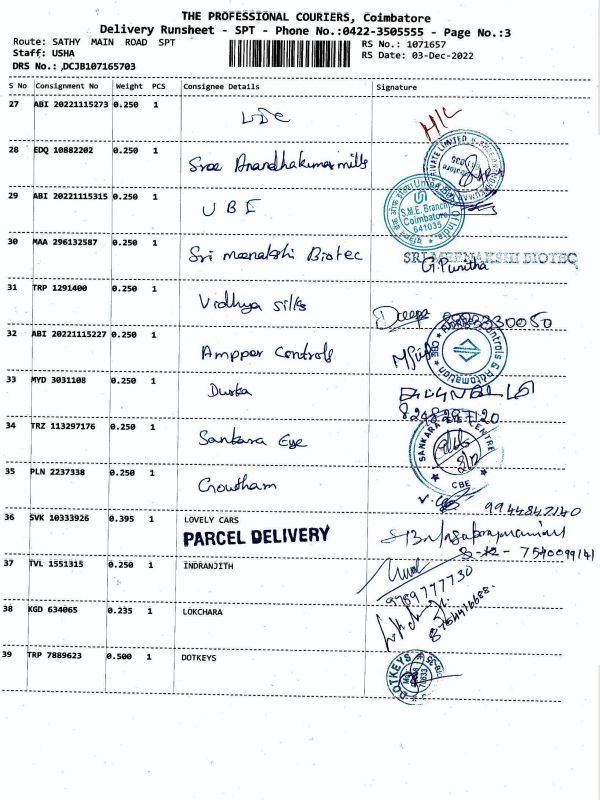 THE PROFESSIONAL COURIERS, Coimbatore
Delivery Runsheet - SPT - Phone No.:0422-3505555 - Page No.:3
Route: SATHY MAIN ROAD SPT
RS No.: 1071657
Staff: USHA
RS Date: 03-Dec-2022
DRS No.: DCJB107165703
S No Consignment No Weight PCS Consignee Details Signature
27 ABI 20221115273 0.250 1
28 EDQ 10882202 0.250 1 Sree Anandhakumar mills
29 ABI 20221115315 0.250 1 UBI
S.M.E. Branch
Coimbatore
641035
30 MAA 296132587 0.250 1 Sri meenakshi Biotec SRI MEENAKSHI BIOTEC
G. Punitha
31 TRP 1291400 0.250 1 Vidhya silks
32 ABI 20221115227 0.250 1 Ampper Controls
33 MYD 3031108 0.250 1
34 TRZ 113297176 0.250 1 Sankara Eye
SANKARA EYE CENTRE
CBE
35 PLN 2237338 0.250 1 Goutham
9944842140
36 SVK 10333926 0.395 1 LOVELY CARS
PARCEL DELIVERY
37 TVL 1551315 0.250 1 INDRANJITH
9789777730
38 KGD 634065 0.235 1 LOKCHARA
39 TRP 7889623 0.500 1 DOTKEYS
DOTKEYS